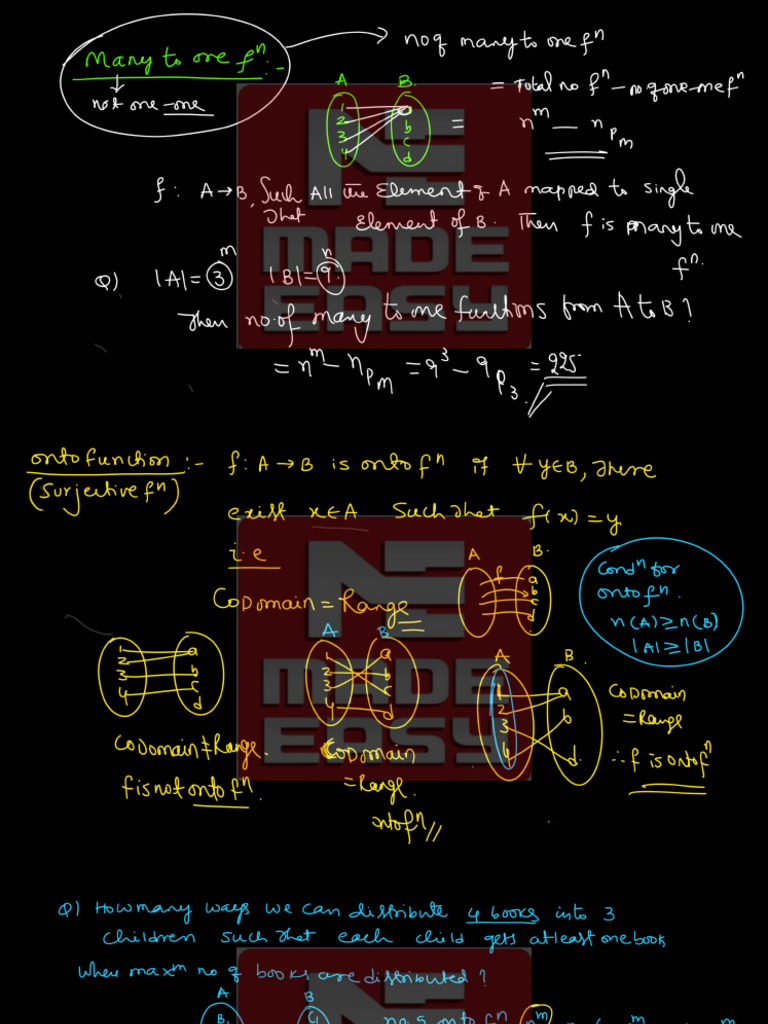 Many to one fⁿ :-
not one-one
no of many to one fⁿ
= Total no fⁿ - no of one-one fⁿ
= nᵐ - nPm
A B
1 a
2 b
3 c
4 d
f : A → B, Such that All the Element of A mapped to single
Element of B. Then f is many to one
fⁿ.
Q) |A| = 3 m |B| = 9 n
Then no. of many to one functions from A to B ?
= nᵐ - nPm = 9³ - 9P3 = 225
onto function :- f : A → B is onto fⁿ if ∀ y∈B, there
(Surjective fⁿ)
exist x∈A Such that f(x) = y
i.e
CoDomain = Range
A B
f a
b
c
d
Condⁿ for
onto fⁿ.
n(A) ≥ n(B)
|A| ≥ |B|
1 a
2 b
3 c
4 d
CoDomain ≠ Range.
f is not onto fⁿ.
A B
1 a
2 b
3 c
4 d
CoDomain
= Range.
onto fⁿ //
A B.
1 a
2 b
3
4 d
CoDomain
= Range
∴ f is onto fⁿ
Q) How many ways we can distribute 4 books into 3
children such that each child gets atleast one book,
When maxᵐ no of books are distributed ?
A B
B₁ C₁ no of onto fⁿ nᵐ
MADE
EASY
MADE
EASY